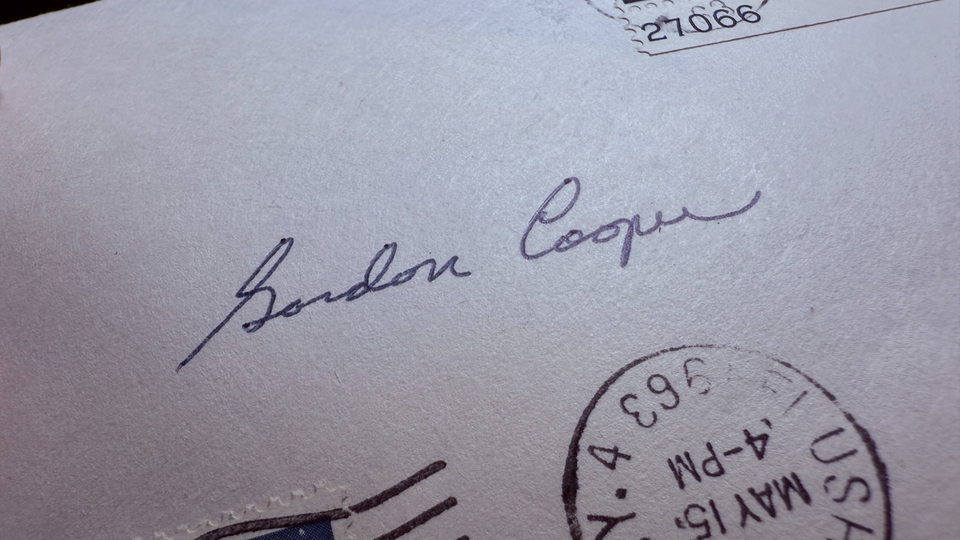 27066
Gordon Cooper
1963
4-PM
MAY 15
USA